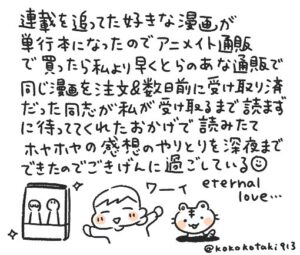 連載を追ってた好きな漫画が
単行本になったのでアニメイト通販
で買ったら私より早くとらのあな通販で
同じ漫画を注文&数日前に受け取り済
だった同志が私が受け取るまで読まず
に待っててくれたおかげで読みたて
ホヤホヤの感想のやりとりを深夜まで
できたのでごきげんに過ごしている☺
ワーイ
eternal
love…
@kokokotaki913